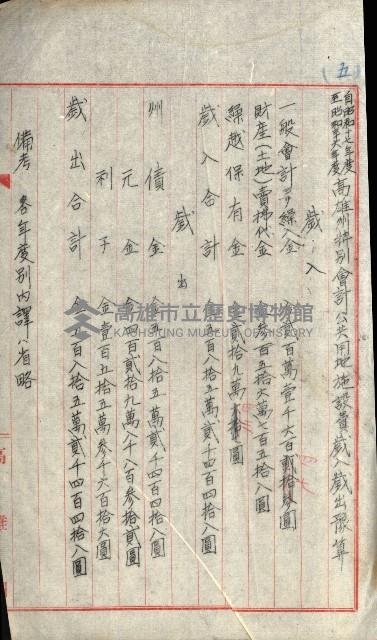 （五）
自昭和十七年度
至昭和 年度
高雄州特別會計公共用地施設費歲入歲出豫算
歲入
一般會計ヨリ繰入金 金貳百萬壹千六百貳拾參圓
財產（土地）賣拂代金 百五拾六萬七百五拾八圓
繰越保有金 貳拾九萬 圓
歲入合計 百八拾五萬貳千四百四拾八圓
歲出
州債金 金 百八拾五萬貳千四百四拾八圓
元金 金 百貳拾九萬八千八百參拾貳圓
利子 金壹百五拾五萬參千六百拾六圓
歲出合計 金 百八拾五萬貳千四百四拾八圓
備考 各年度別內譯ハ省略
高雄市立歷史博物館
KAOHSIUNG MUSEUM OF HISTORY
高雄